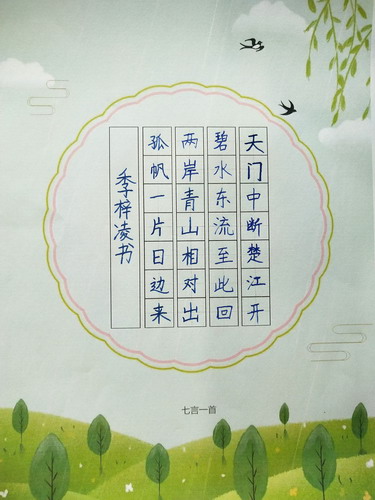 天门中断楚江开
碧水东流至此回
两岸青山相对出
孤帆一片日边来
季梓凌书
七言一首